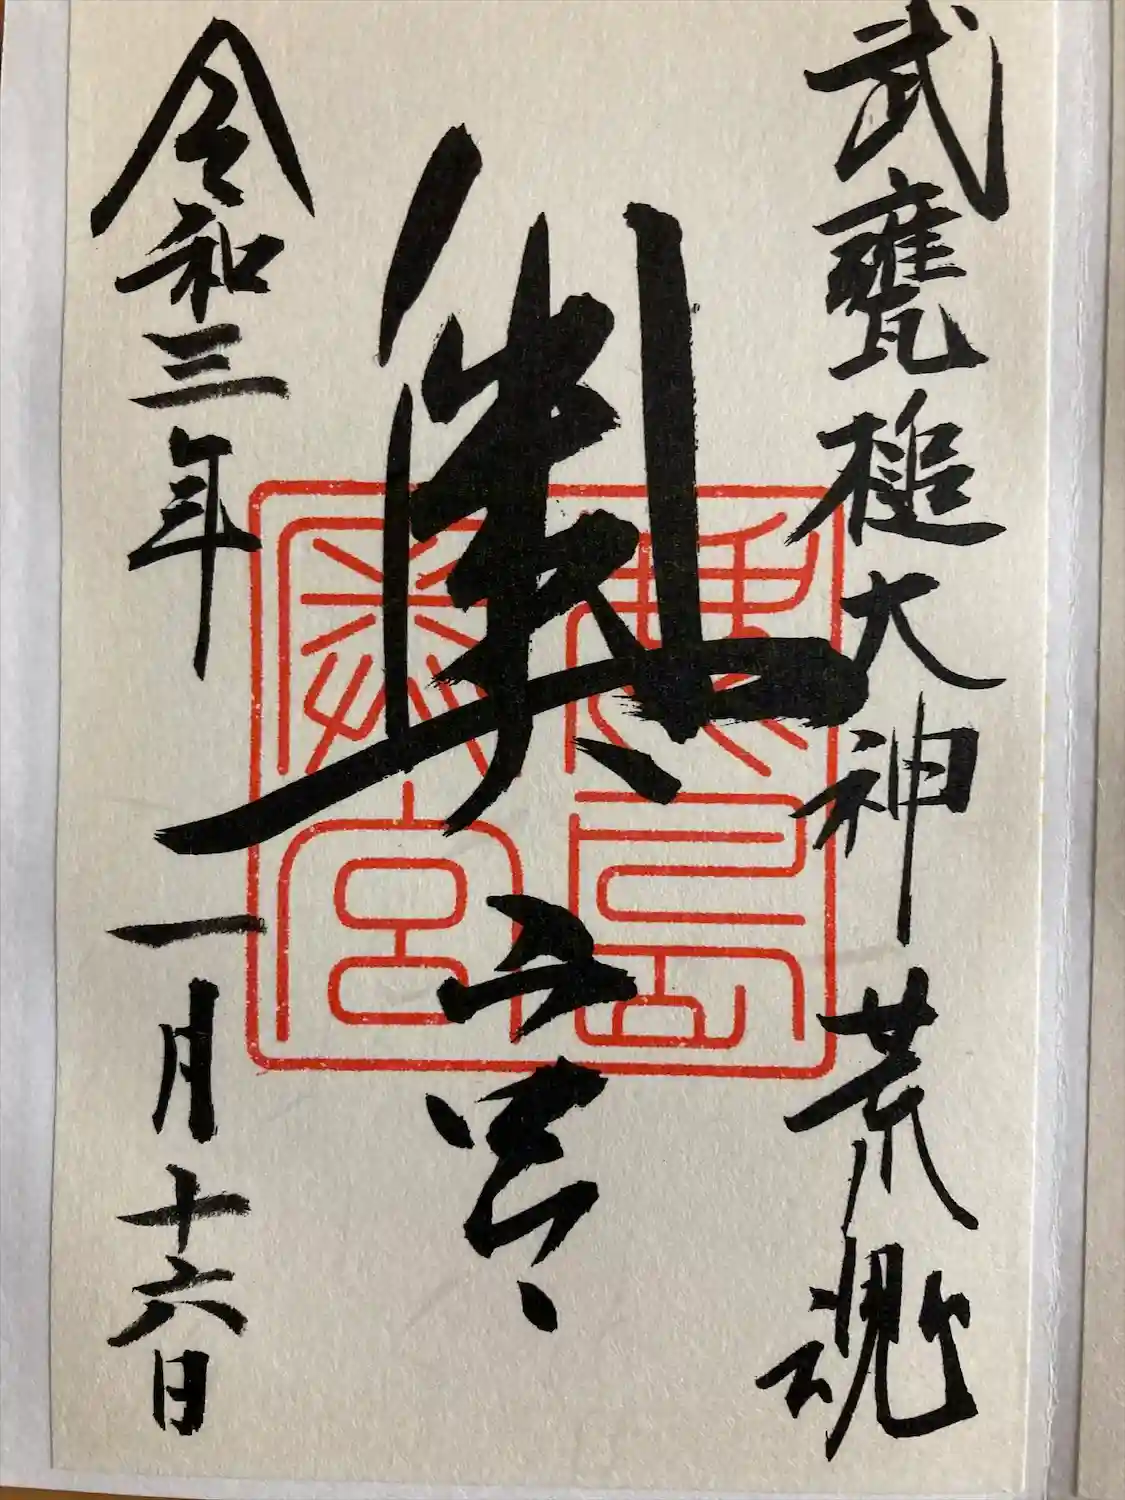 武甕槌大神荒魂
奥之宮
鹿島奥宮
令和三年一月十六日